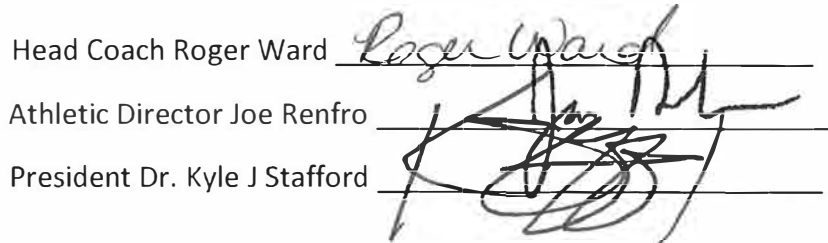 Head Coach Roger Ward Roger Ward
Athletic Director Joe Renfro
President Dr. Kyle J Stafford